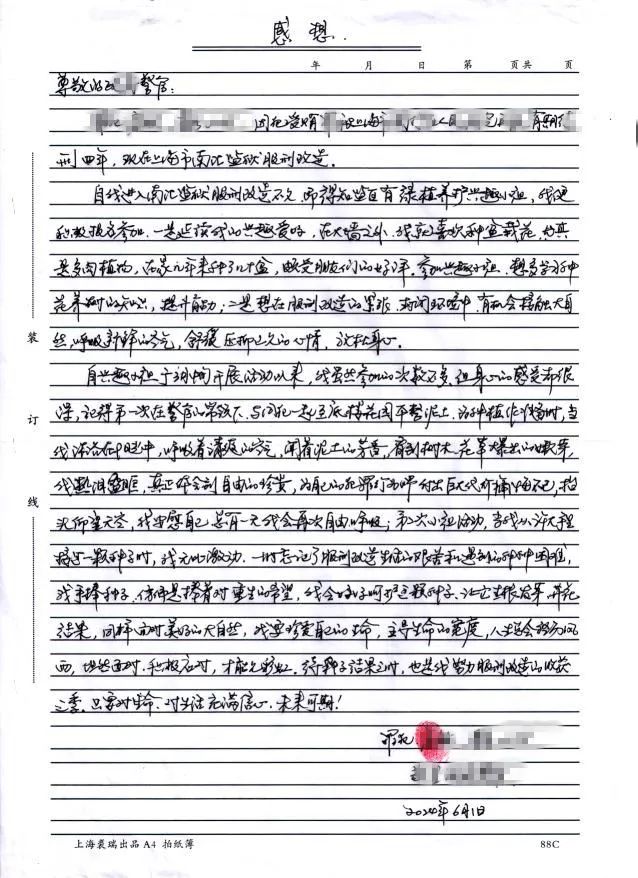 感想.
年 月 日 第 页共 页
尊敬的 警官:
因犯 有期徒
刑四年，现在上海市南汇监狱服刑改造。
自我进入南汇监狱服刑改造不久 即得知监区有绿植养护兴趣小组，我便
积极报名参加. 一是延续我的兴趣爱好，在大墙之外，我就喜欢种盆栽花，尤其
是多肉植物，在家几年来种了几十盆，颇受朋友们的好评。参加兴趣小组 想多学习种
花养树的知识，提升自己；二是想在服刑改造的 封闭环境中，有机会接触大自
然，呼吸新鲜的空气，舒缓压抑已久的心情，放松身心。
自兴趣小组 开展活动以来，我虽然参加的次数不多，但身心的感受却很
深，记得第一次在警官的带领下，与同犯一起至底楼花园平整泥土，治种植作准备时，当
我沐浴在阳光中，呼吸着清爽的空气，闻着泥土的芳香，看到树木、花草 的嫩芽，
我热泪盈眶，真正体会到自由的珍贵，为自己的犯罪行为将付出巨大代价痛悔不已，抬
头仰望天空，我 自己总有一天我会再次自由呼吸；第二次小组活动，当我从 手里
接过一颗种子时，我无比激动. 一时忘记了服刑改造生活的艰苦和遇到的种种困难，
我手捧种子. 仿佛是捧着对重生的希望，我会好好呵护这颗种子，让它生根发芽、开花
结果，同样面对美好的大自然，我要珍爱自己的生命，主导生命的宽度，人生总会 风
雨，坦然面对，积极应对，才能见彩虹。待种子结果之时，也是我努力服刑改造的收获
之季，只要对生命、对生活充满信心，未来可期！
罪犯
2024年6月1日
装
订
线
上海裴瑞出品 A4 拍纸簿 88C